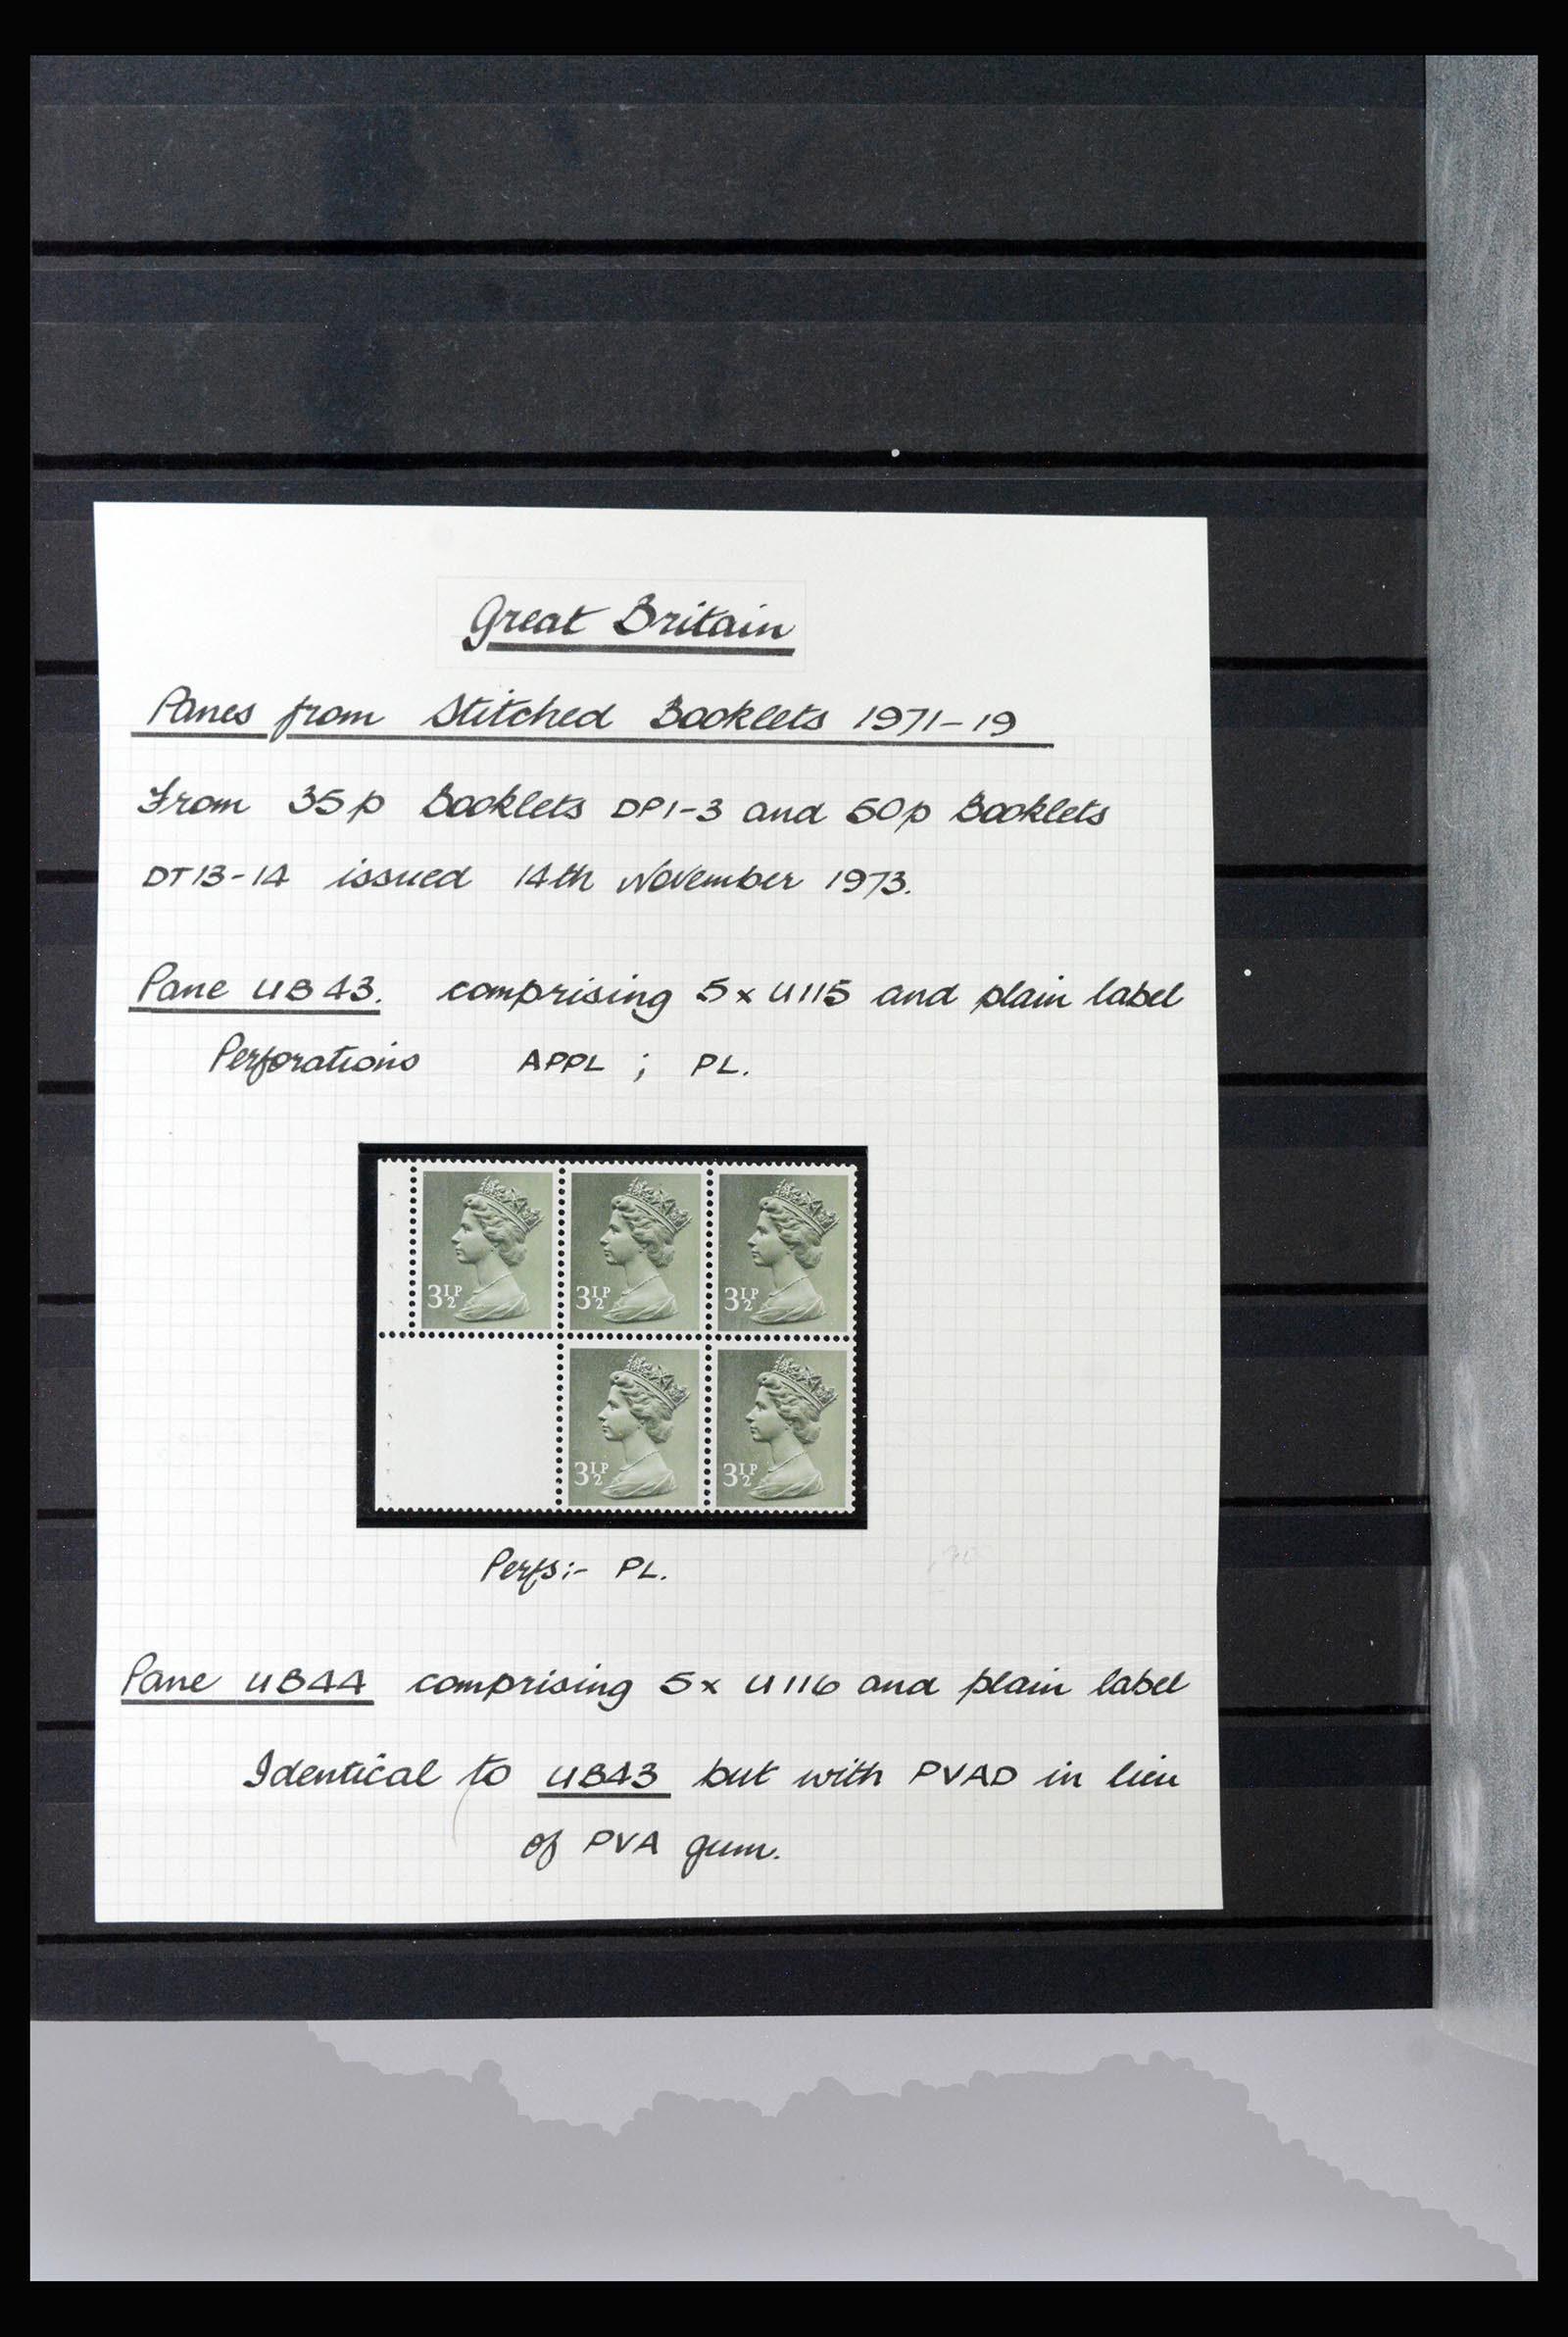 Great Britain
Panes from Stitched Booklets 1971-19
From 35p Booklets DP1-3 and 50p Booklets
DT13-14 issued 14th November 1973.
Pane UB43. comprising 5x U115 and plain label
Perforations APPL ; PL.
3½P 3½P 3½P
3½P 3½P
Perfs:- PL.
Pane UB44 comprising 5x U116 and plain label
Identical to UB43 but with PVAD in lieu
of PVA gum.